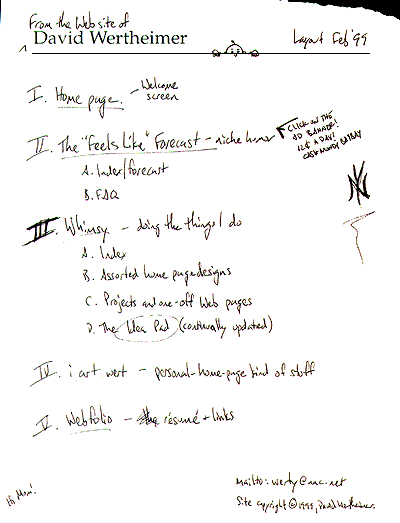 From the Web site of
David Wertheimer
Layout Feb '99
I. Home page. - Welcome screen
II. The "Feels Like" Forecast - niche humor
CLICK ON THE
AD BANNER!
12¢ A DAY!
A. Index/forecast
B. FAQ
III. Whimsy - doing the things I do
A. Index
B. Assorted home page designs
C. Projects and one-off Web pages
D. The Idea Pad (continually updated)
IV. i art wert - personal-home-page kind of stuff
V. Webfolio - résumé + links
Hi Mom!
mailto: werty@
Site copyright © 1999, David Wertheimer.